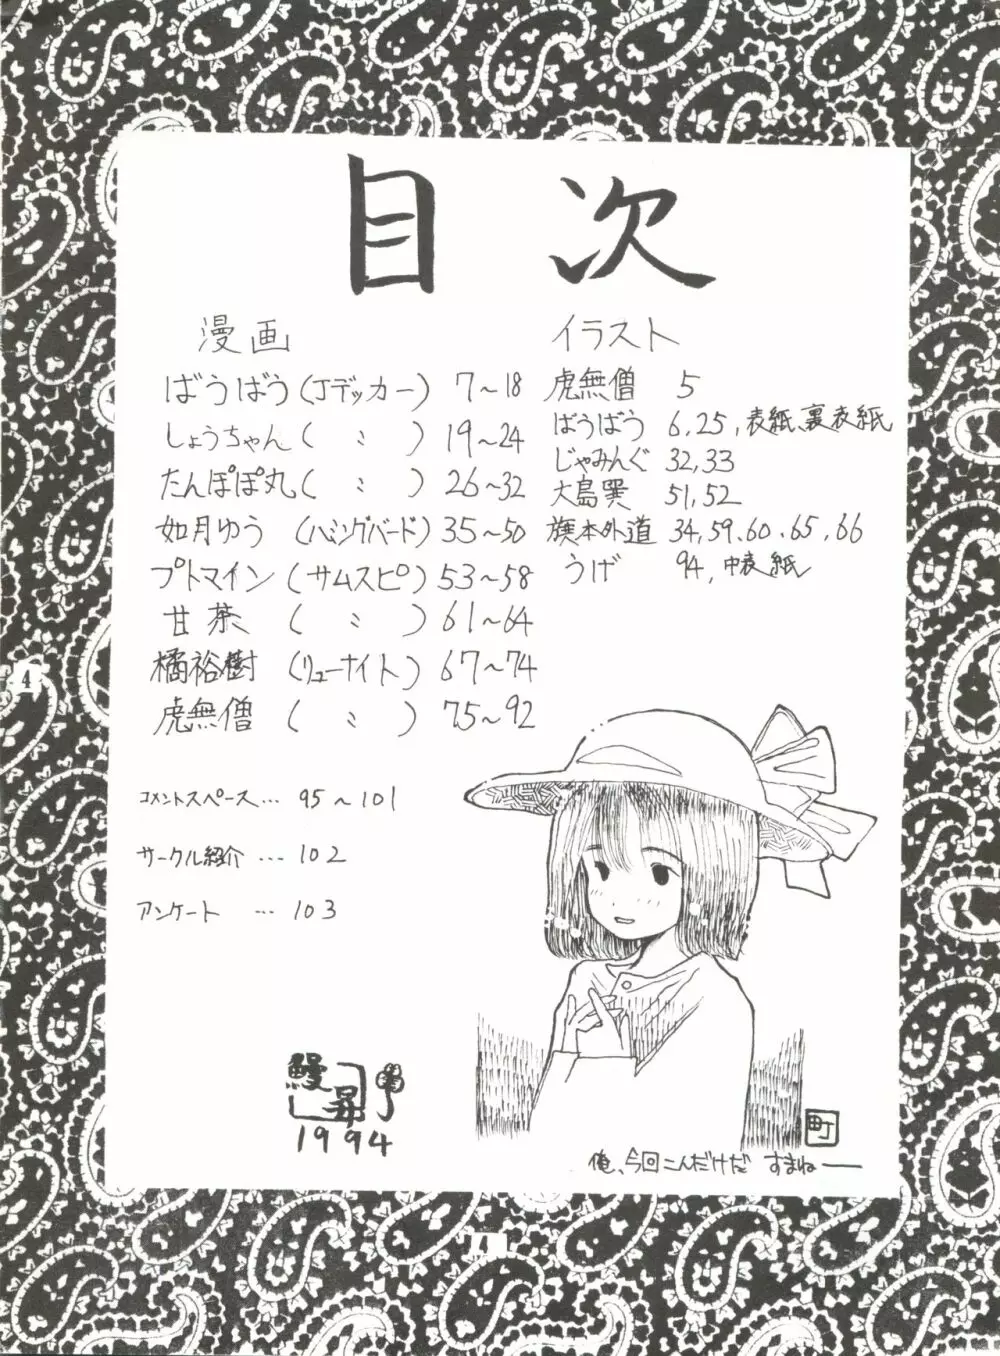 目次
漫画
ばうばう(Jデッカー) 7〜18
しょうちゃん(〃) 19〜24
たんぽぽ丸(〃) 26〜32
如月ゆう(ハミングバード) 35〜50
プトマイン(サムスピ) 53〜58
甘茶(〃) 61〜64
橘裕樹(リューナイト) 67〜74
虎無僧(〃) 75〜92
イラスト
虎無僧 5
ばうばう 6,25,表紙、裏表紙
じゃみんぐ 32,33
大島巽 51,52
旗本外道 34,59,60,65,66
うげ 94,中表紙
コメントスペース… 95〜101
サークル紹介… 102
アンケート… 103
鰻昇
1994
町
俺、今回こんだけだ すまねー
4
4